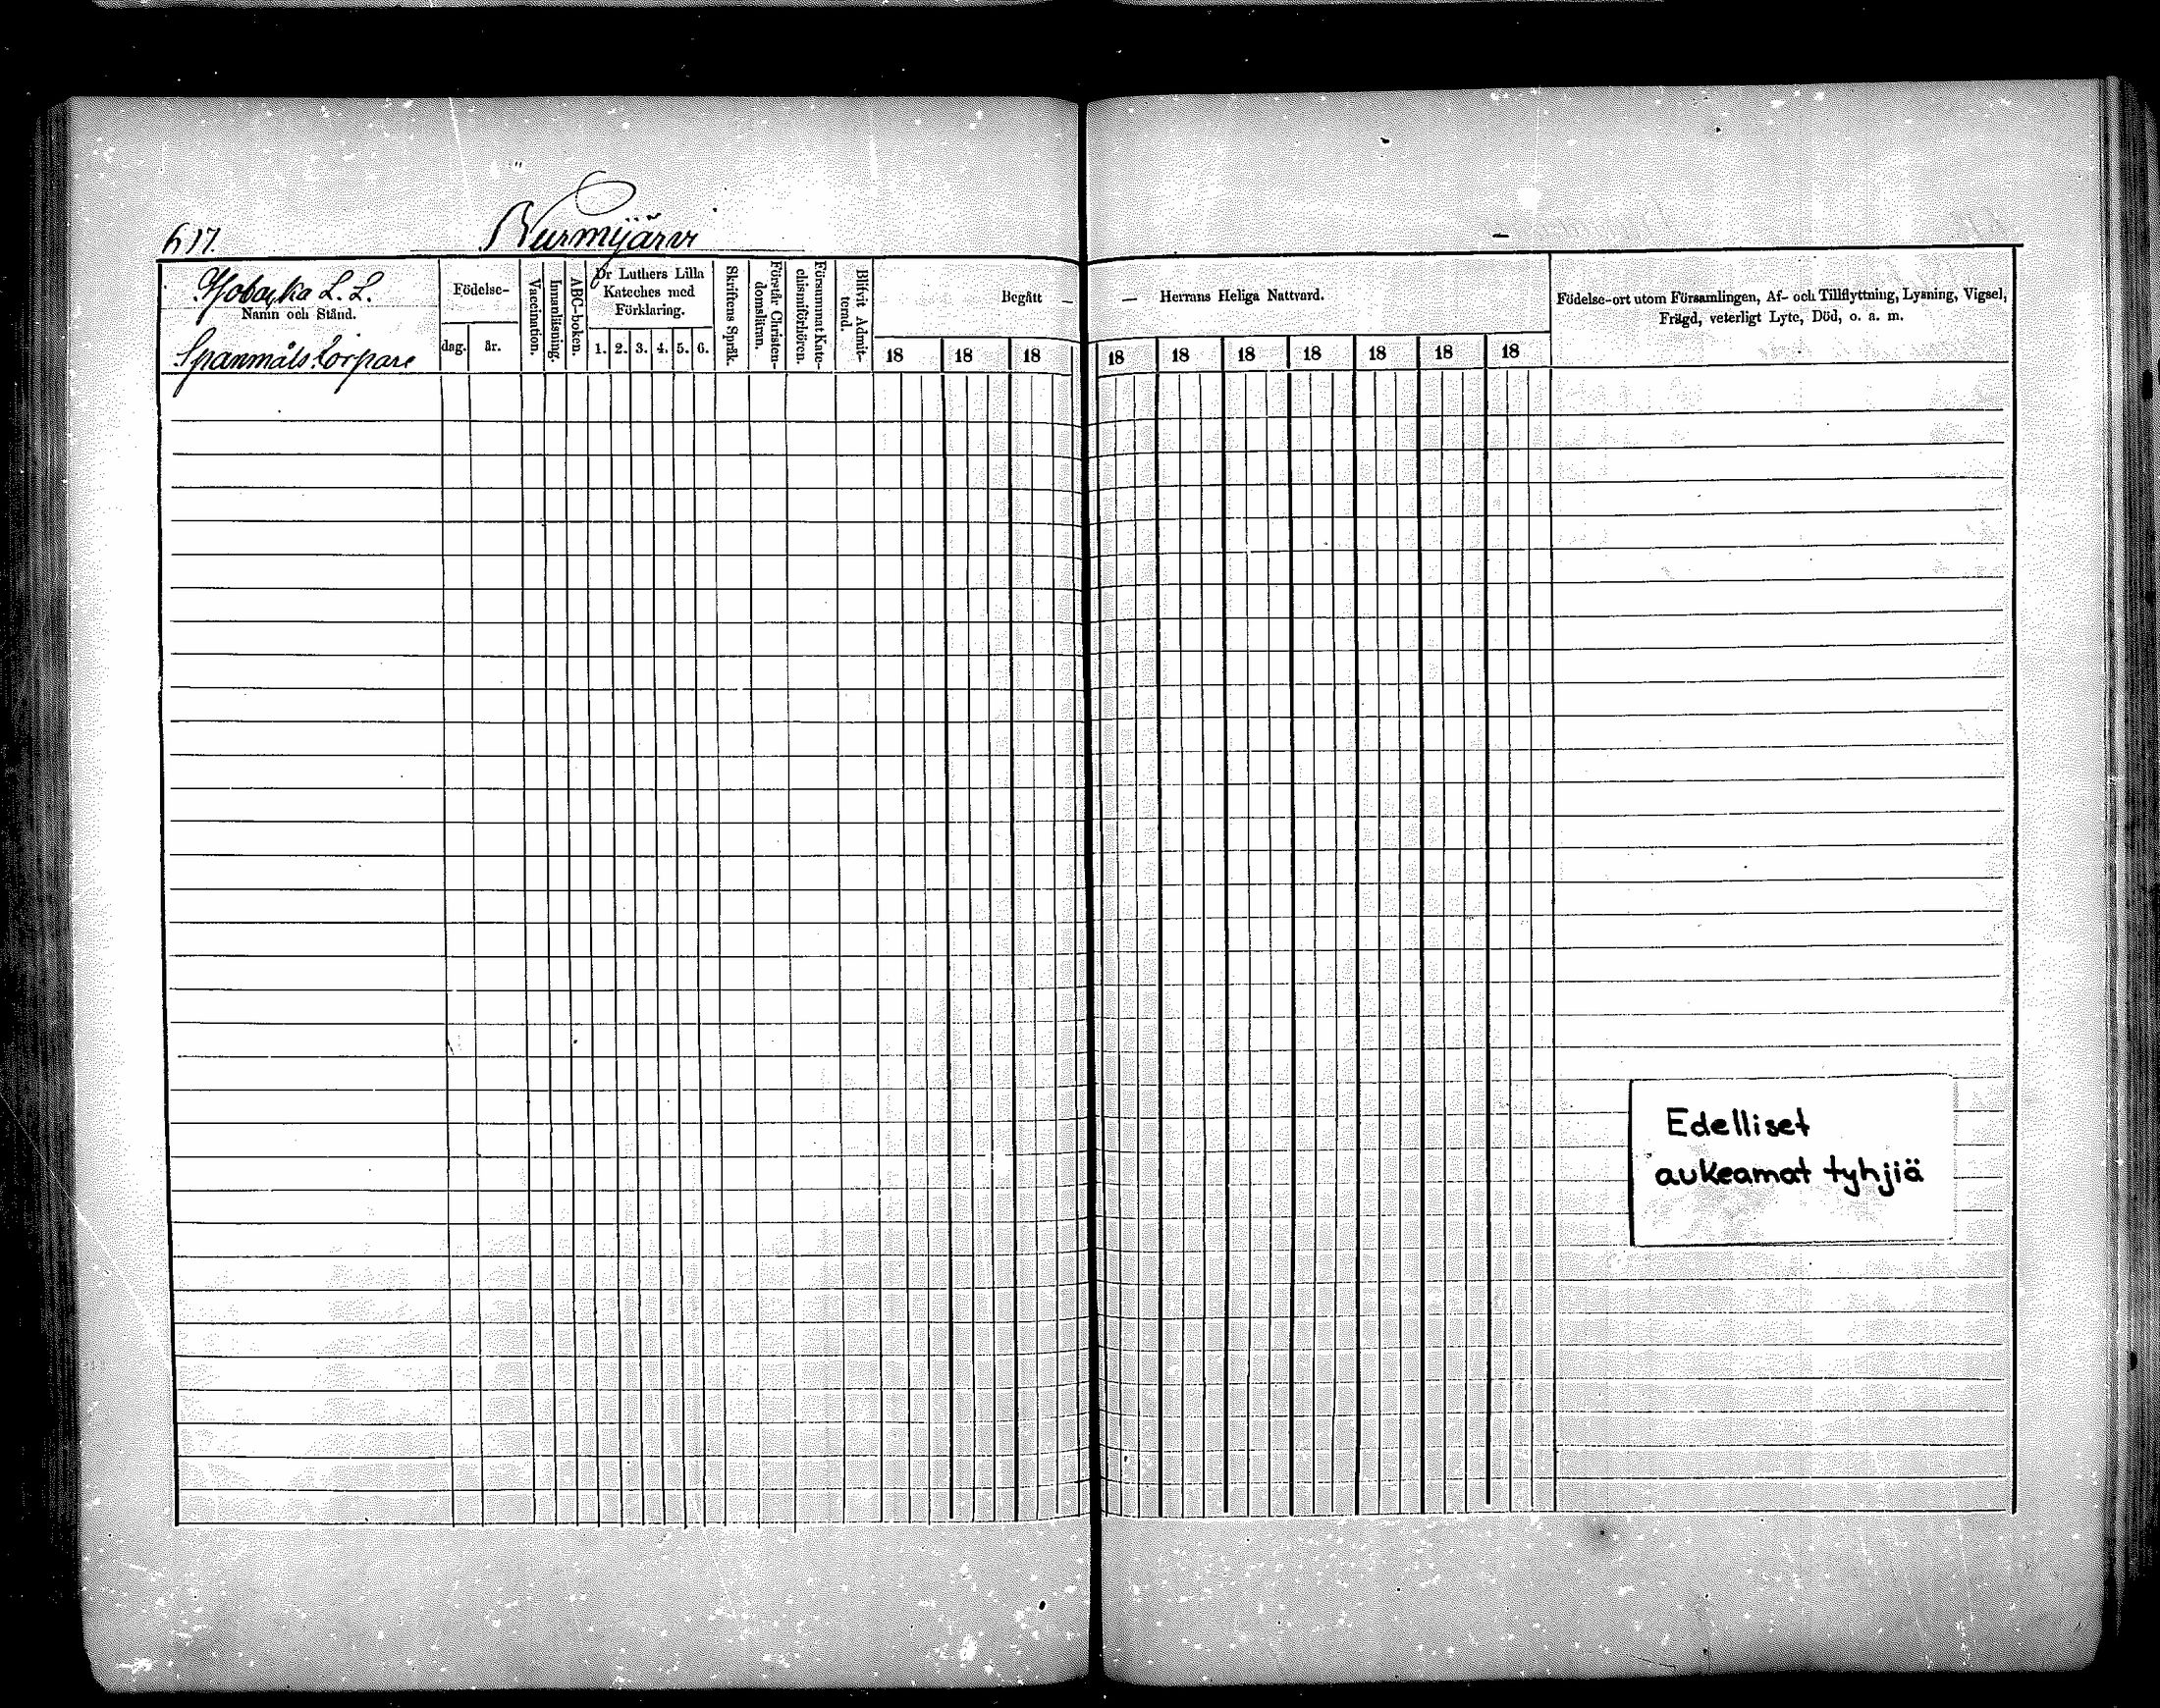 617.
Nurmijärvi
L. L.
Namn och Stånd.
torpare
Födelse-
dag.
år.
Vaccination.
Innanläsning.
ABC-boken.
Dr Luthers Lilla
Kateches med
Förklaring.
1. 2. 3. 4. 5. 6.
Skriftens Språk.
Förstår Christen-
domslänn.
Försummat Kate-
chismiförhören.
Blifvit Admit-
terad.
Begått —
18 18 18
— Herrans Heliga Nattvard.
18 18 18 18 18 18 18
Födelse-ort utom Församlingen, Af- och Tillflyttning, Lysning, Vigsel,
Frägd, veterligt Lyte, Död, o. a. m.
Edelliset
aukeamat tyhjiä